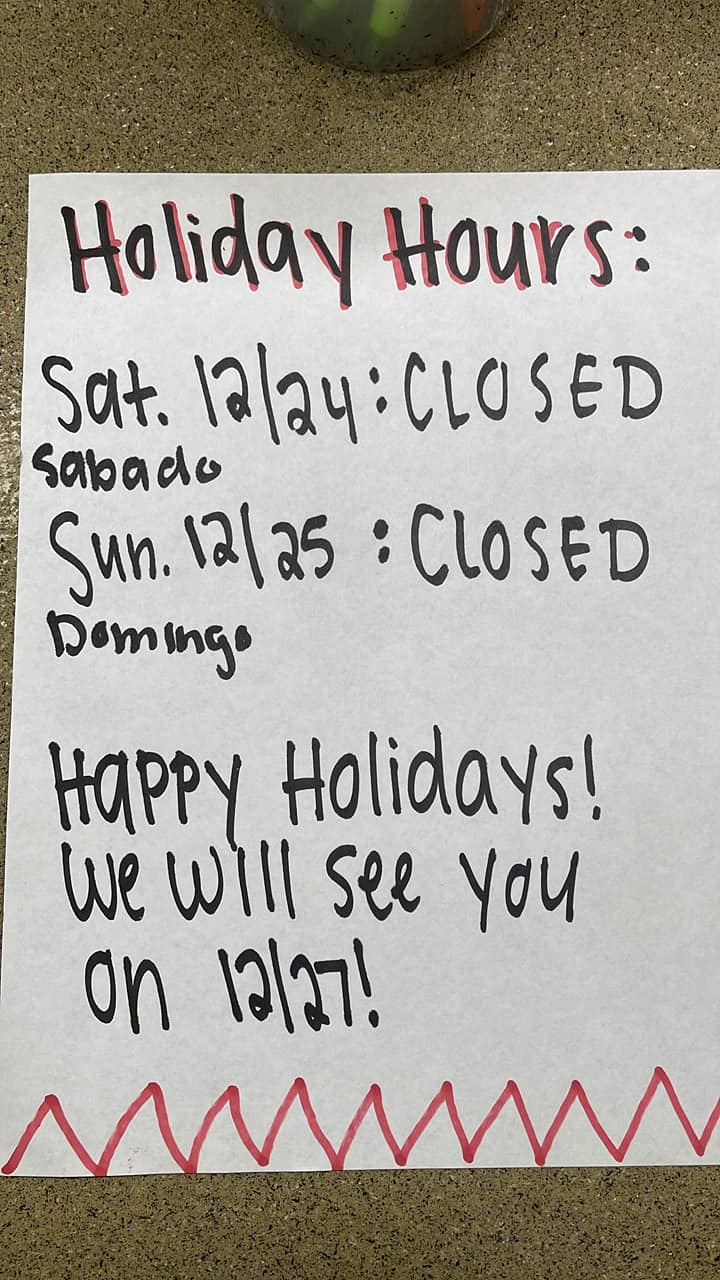 Holiday Hours:
Sat. 12/24: CLOSED
Sabado
Sun. 12/25 : CLOSED
Domingo
Happy Holidays!
We will see you
on 12/27!